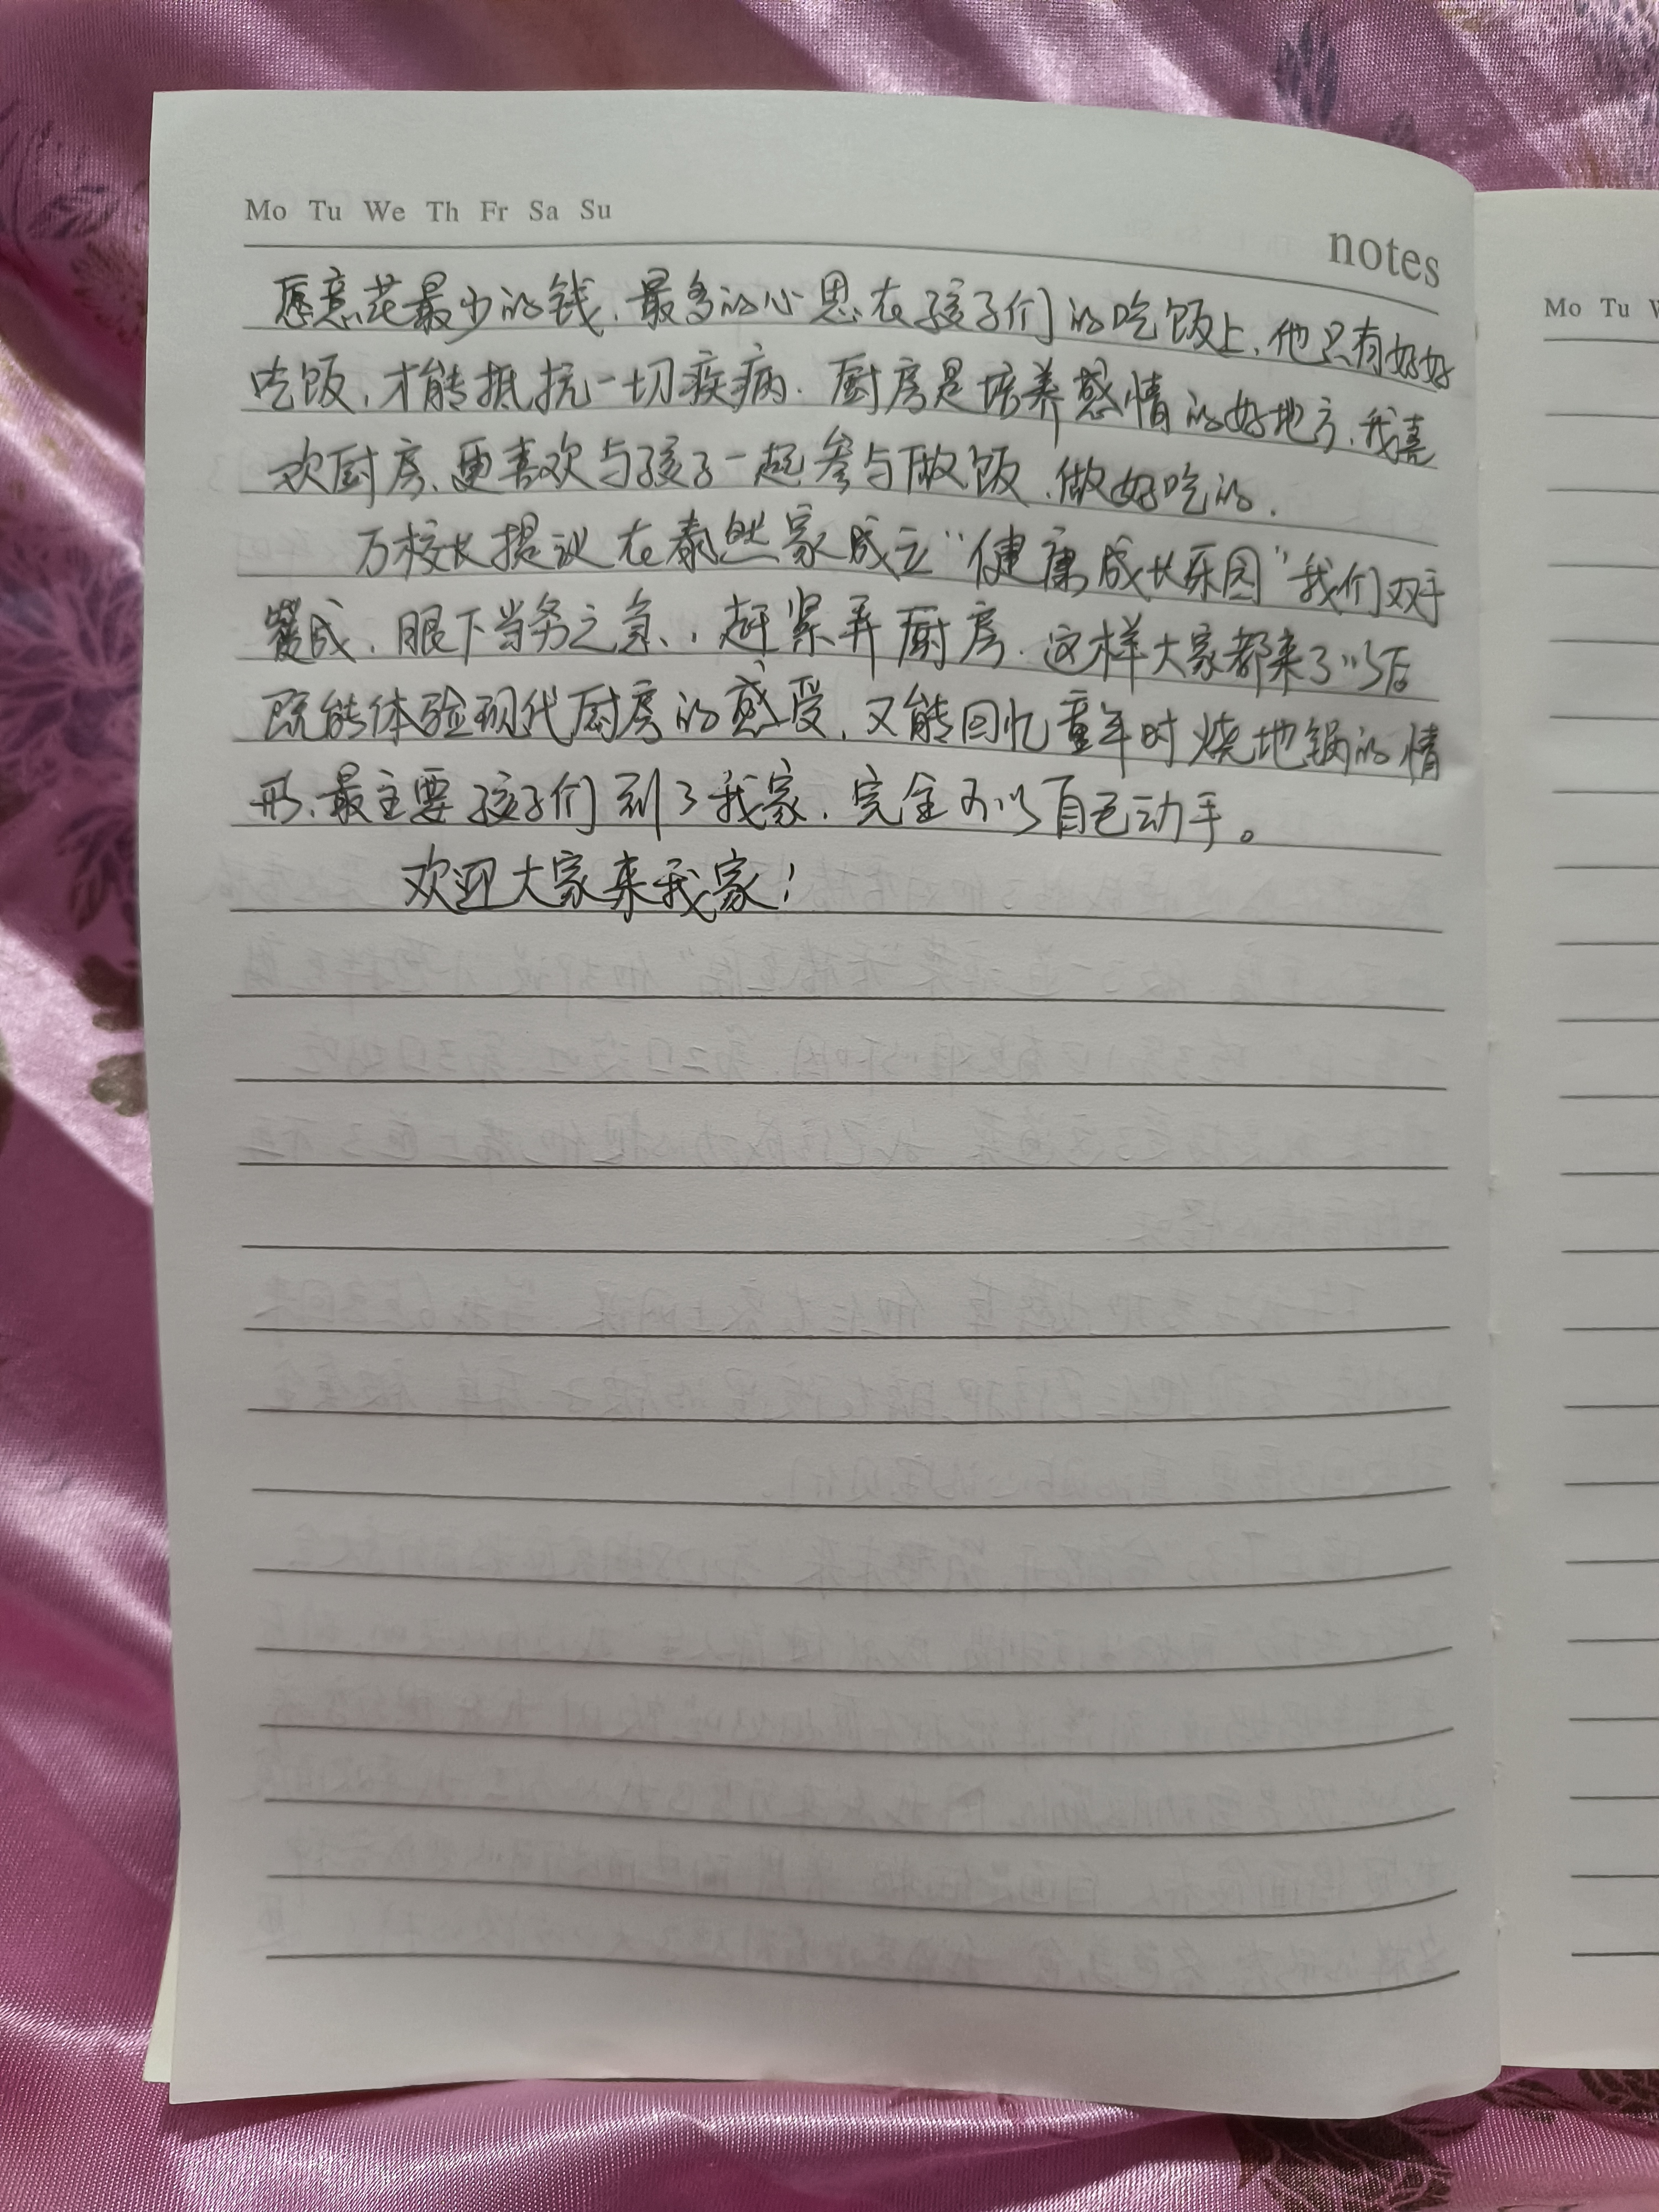 Mo Tu We Th Fr Sa Su
notes
愿意花最少的钱、最多的心思在孩子们的吃饭上、他只有好好
吃饭，才能抵抗一切疾病. 厨房是培养感情的好地方、我喜
欢厨房、更喜欢与孩子一起参与做饭、做好吃的.
万校长提议在泰然家成立“健康成长乐园”我们双手
赞成、眼下当务之急、, 赶紧弄厨房. 这样大家都来了以后
既能体验现代厨房的感受，又能回忆童年时烧地锅的情
形、最主要孩子们到了我家，完全可以自己动手。
欢迎大家来我家！
Mo Tu